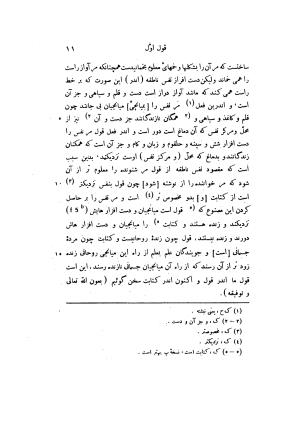 قول اوّل
١١
ساختست که مر آن را بشکلها و خمهای معلوم بخمانیدست همچنانکه مر آواز راست
را همی خماند ولیکن دست افزار نفس ناطقه (اندر) این صورت که بر خط
است همی کند که باشد آواز دراز است دست و قلم و سیاهی و جز آن
است، و اندرین فعل (۱) مر نفس را [میانجی] میانجیان بی جانند چون
قلم و کاغذ و سیاهی و (۲) همگان نازندگانند جز دست و آن (۲) نیز از ٥
محل و مرکز نفس که آن دماغ است دور است و اندر قول مر نفس را
دست افزار شش و سینه و حلقوم و زبان و کام و جز آن است که همگنان
زندگانند و بدماغ که محل (و مرکز نفس) اوست نزدیکند، بدین سبب
است که مقصود نفس ناطقه از گفته شونده را معلوم تر از آن
شود که مر خواننده را از نوشته [شود] چون قول بنفس نزدیکتر (۳) ١٠
است از کتابت [و] بدو مخصوص تر (٤) است و مر نفس را بر حاصل
کردن این مصنوع که (٥) قول است میانجیان و دست افزار هایش (5b)
نزدیکند و زنده هستند و کتابت (٥) را میانجیان و دست افزار هاش
دورند و زنده نیستند، قول چون زندۀ روحانیست و کتابت چون مردۀ
جسمانی [است] و جویندگان علم بعلم از راه این میانجی روحانی زنده ١٥
زود تر از آن رسند که از راه آن میانجیان جسمانی نازنده رسند، این است
قول ما اندر قول و اکنون اندر کتابت سخن گوئیم (بعون الله تعالی
و توفیقه).
(۱) ک ح، یعنی نبشته.
(۲-۲) ک، و جز آن و دست.
(۳) ک، مخصوصتر.
(٤) ک، نزدیکتر.
(٥-٥) ک، کتابت است، نسخۀ پ بهتر است.